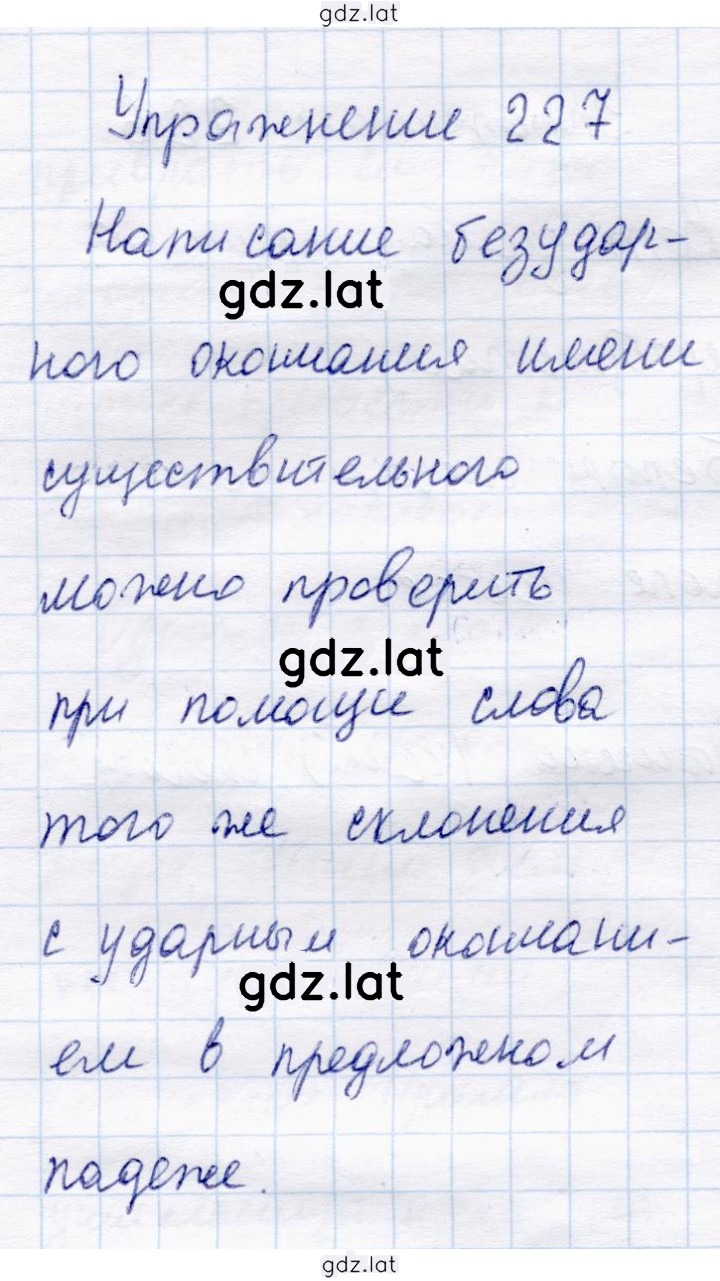 gdz.lat
Упражнение 227
Написание безудар-
gdz.lat
ного окончания имени
существительного
можно проверить
gdz.lat
при помощи слова
того же склонения
с ударным окончани-
gdz.lat
ем в предложном
падеже.
gdz.lat